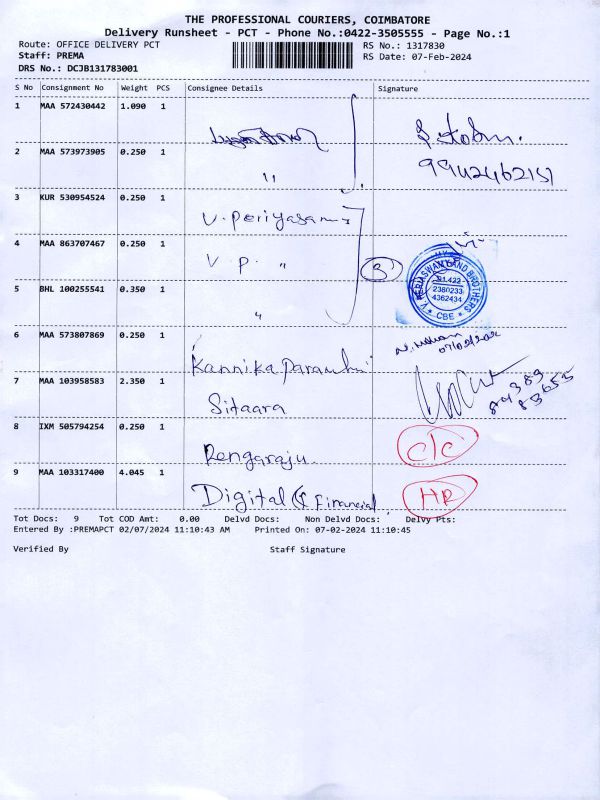 THE PROFESSIONAL COURIERS, COIMBATORE
Delivery Runsheet - PCT - Phone No.:0422-3505555 - Page No.:1
Route: OFFICE DELIVERY PCT
RS No.: 1317830
Staff: PREMA
RS Date: 07-Feb-2024
DRS No.: DCJB131783001
S No Consignment No Weight PCS Consignee Details Signature
1 MAA 572430442 1.090 1
2 MAA 573973905 0.250 1
"
3 KUR 530954524 0.250 1
V. Periyasamy
4 MAA 863707467 0.250 1
V. P. "
3
5 BHL 100255541 0.350 1
"
2380233
4362434
CBE
6 MAA 573807869 0.250 1
Kannika
7 MAA 103958583 2.350 1
Sitaara
8 IXM 505794254 0.250 1
Rengaraju.
C/C
9 MAA 103317400 4.045 1
Digital & Financial
HR
Tot Docs: 9 Tot COD Amt: 0.00 Delvd Docs: Non Delvd Docs: Delvy Pts:
Entered By :PREMAPCT 02/07/2024 11:10:43 AM Printed On: 07-02-2024 11:10:45
Verified By Staff Signature